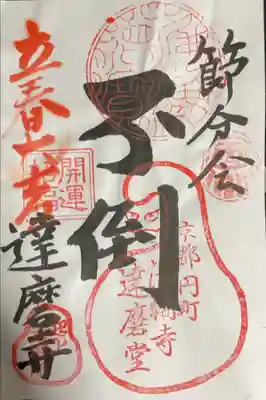 節分会
不倒
立春大吉
達磨
開運
京都円町
法輪寺
達磨堂